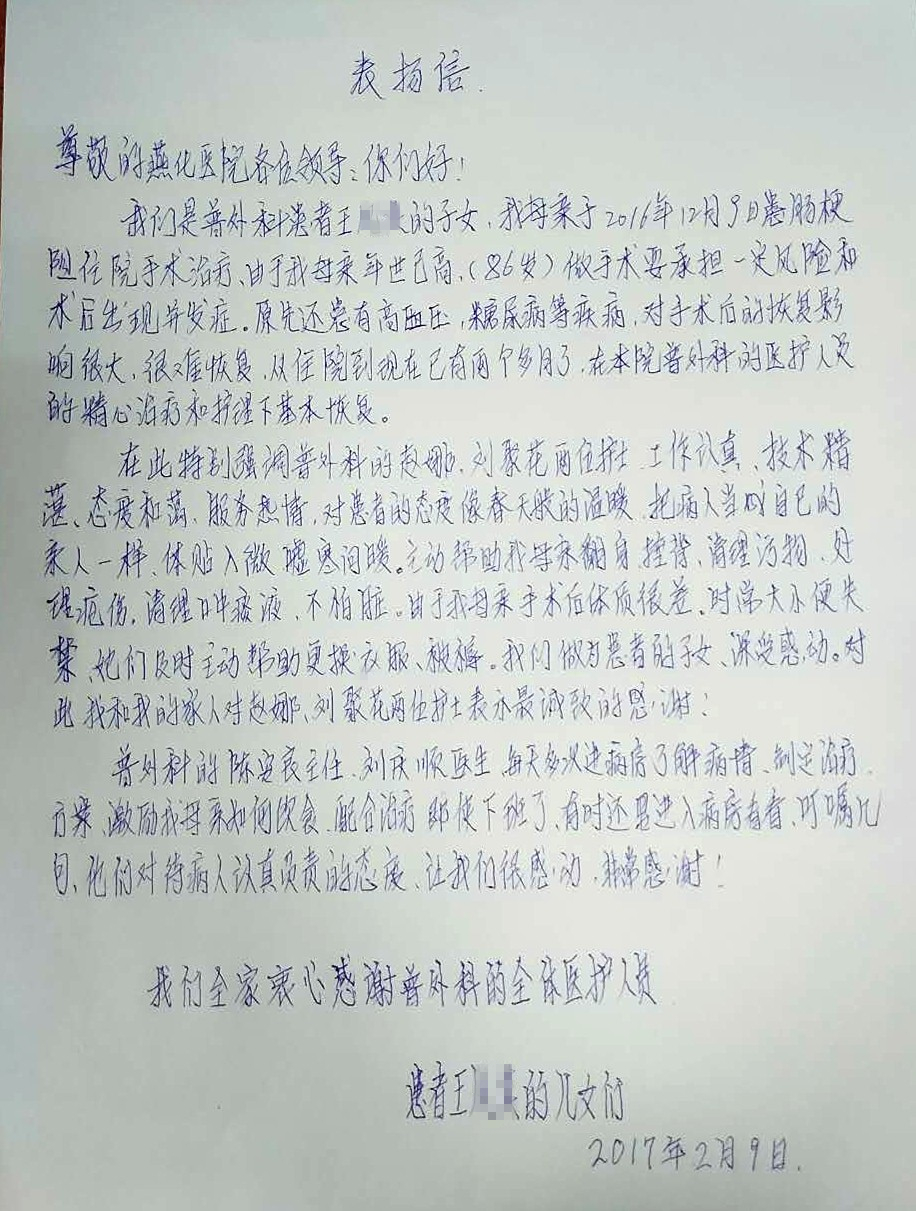 表扬信.
尊敬的燕化医院各位领导:你们好!
我们是普外科患者王 的子女,我母亲于2016年12月9日患肠梗
阻住院手术治疗,由于我母亲年世已高,(86岁)做手术要承担一定风险和
术后出现并发症。原先还患有高血压,糖尿病等疾病,对手术后的恢复影
响很大,很难恢复,从住院到现在已有两个多月了,在本院普外科的医护人员
的精心治疗和护理下基本恢复。
在此特别强调普外科的赵娜、刘聚花两位护士,工作认真、技术精
湛、态度和蔼、服务热情,对患者的态度像春天般的温暖,把病人当成自己的
亲人一样、体贴入微,嘘寒问暖。主动帮助我母亲翻身、控背、清理污物、处
理疮伤,清理口中痰液,不怕脏。由于我母亲手术后体质很差,时常大小便失
禁,她们及时主动帮助更换衣服、被褥。我们做为患者的子女、深受感动。对
此我和我的家人对赵娜、刘聚花两位护士表示最诚致的感谢!
普外科的陈宏良主任、刘庆顺医生,每天多次进病房了解病情、制定治疗
方案,激励我母亲如何饮食、配合治疗,即使下班了,有时还要进入病房看看,叮嘱几
句,他们对待病人认真负责的态度、让我们很感动,非常感谢!
我们全家衷心感谢普外科的全体医护人员
患者王 的儿女们
2017年2月9日.